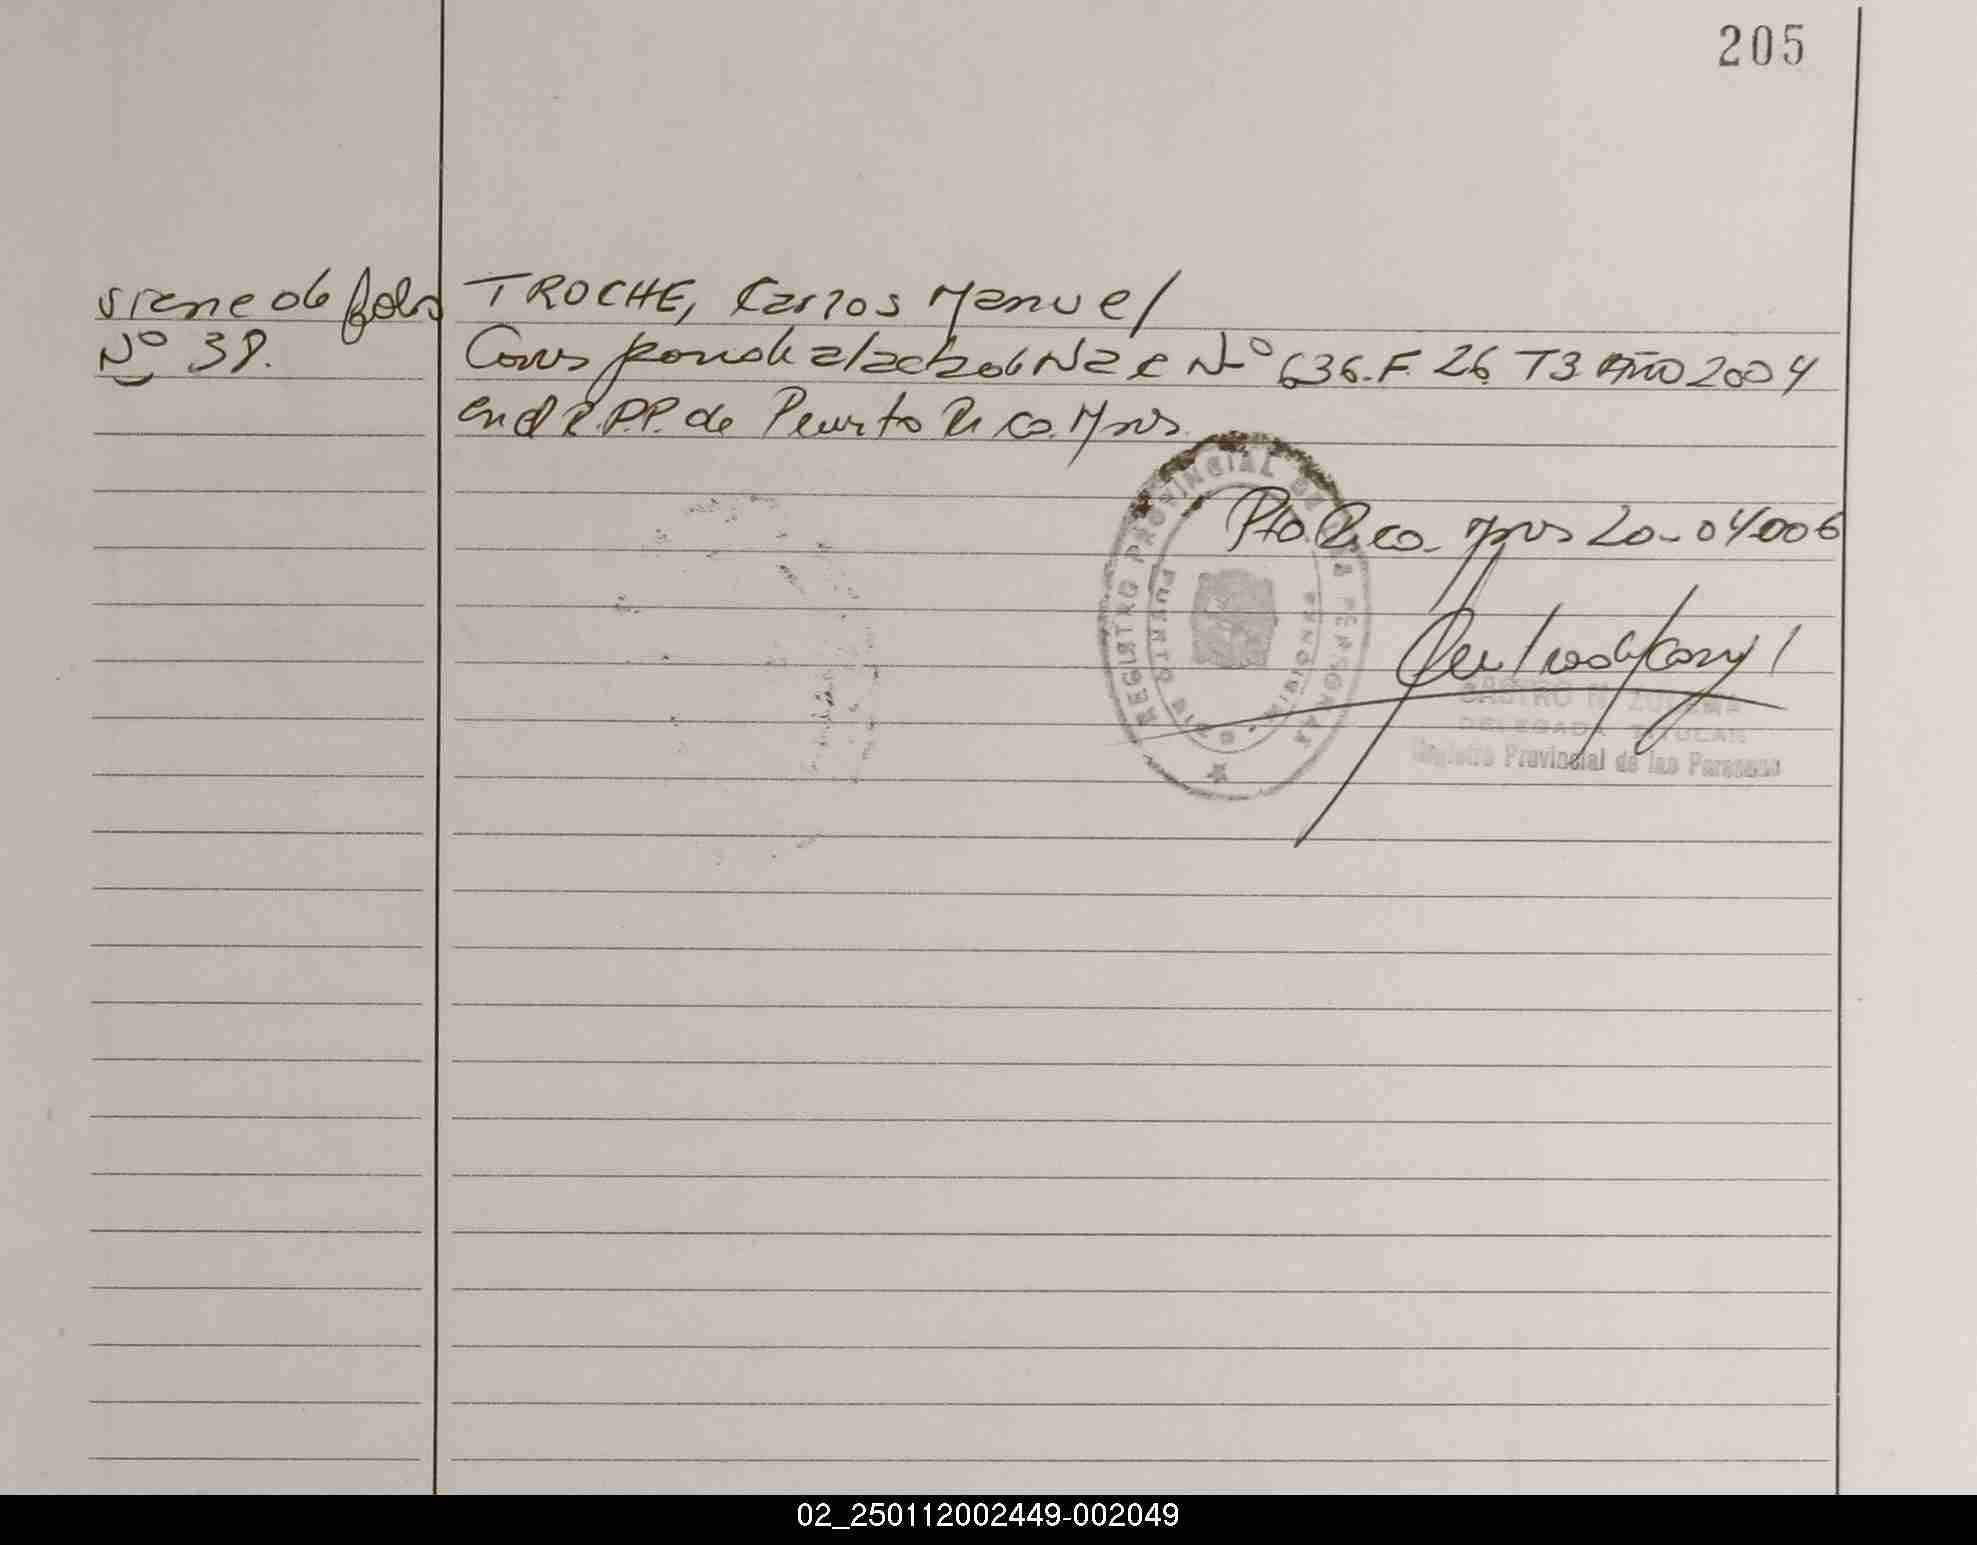 205
viene de folio
Nº 38.
TROCHE, Carlos Manuel
Corresponde al acta de Nac Nº 636. F. 26 T3 Año 2004
en el R.P.P. de Puerto Rico. Mnes
REGISTRO PROVINCIAL DE LAS PERSONAS
PUERTO RICO
Pto. Rico - Mnes 20-04-006
CASTRO N. ZULEMA
DELEGADA TITULAR
Registro Provincial de las Personas
02_250112002449-002049